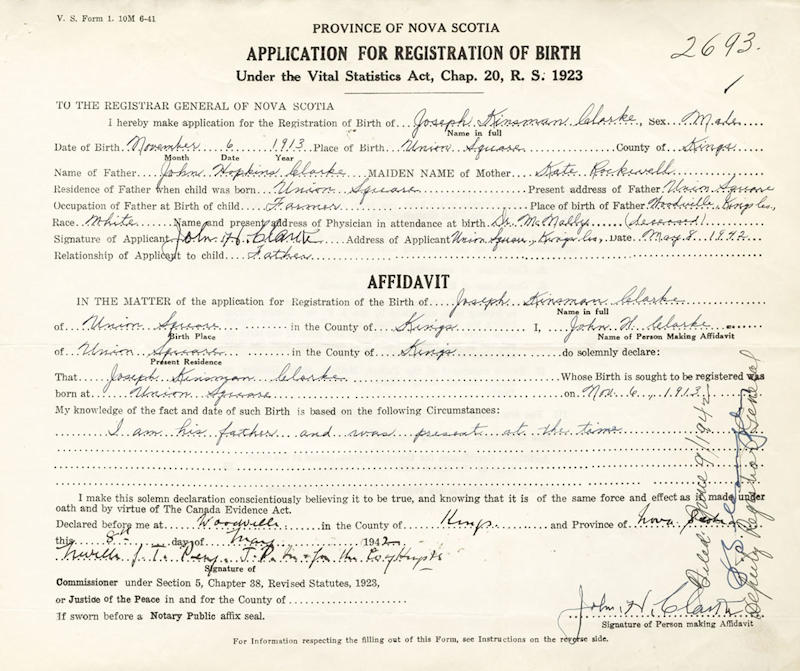 V. S. Form 1. 10M 6-41
PROVINCE OF NOVA SCOTIA
APPLICATION FOR REGISTRATION OF BIRTH
Under the Vital Statistics Act, Chap. 20, R. S. 1923
2693.
TO THE REGISTRAR GENERAL OF NOVA SCOTIA
I hereby make application for the Registration of Birth of Joseph Kinsman Clarke, Sex Male
Name in full
Date of Birth November 6 1913 Place of Birth Union Square County of Kings
Month Date Year
Name of Father John Hopkins Clarke MAIDEN NAME of Mother Kate Rockwell
Residence of Father when child was born Union Square Present address of Father Union Square
Occupation of Father at Birth of child Farmer Place of birth of Father Woodville, Kings Co,
Race White Name and present address of Physician in attendance at birth Dr. McNally (deceased)
Signature of Applicant John H. Clarke Address of Applicant Union Square, Kings Co, Date May 8 1942
Relationship of Applicant to child Father
AFFIDAVIT
IN THE MATTER of the application for Registration of the Birth of Joseph Kinsman Clarke
Name in full
of Union Square in the County of Kings I, John H. Clarke
Birth Place Name of Person Making Affidavit
of Union Square in the County of Kings do solemnly declare:
Present Residence
That Joseph Kinsman Clarke Whose Birth is sought to be registered was
born at Union Square on Nov. 6, 1913
My knowledge of the fact and date of such Birth is based on the following Circumstances:
I am his father and was present at the time
I make this solemn declaration conscientiously believing it to be true, and knowing that it is of the same force and effect as if made under
oath and by virtue of The Canada Evidence Act.
Declared before me at Woodville in the County of Kings and Province of Nova Scotia
this 8th day of May 1942
J. P. in & for the
Signature of
Commissioner under Section 5, Chapter 38, Revised Statutes, 1923,
or Justice of the Peace in and for the County of
If sworn before a Notary Public affix seal.
John H. Clarke
Signature of Person making Affidavit
For Information respecting the filling out of this Form, see Instructions on the reverse side.
Filed June 9/1942
Deputy Registrar General